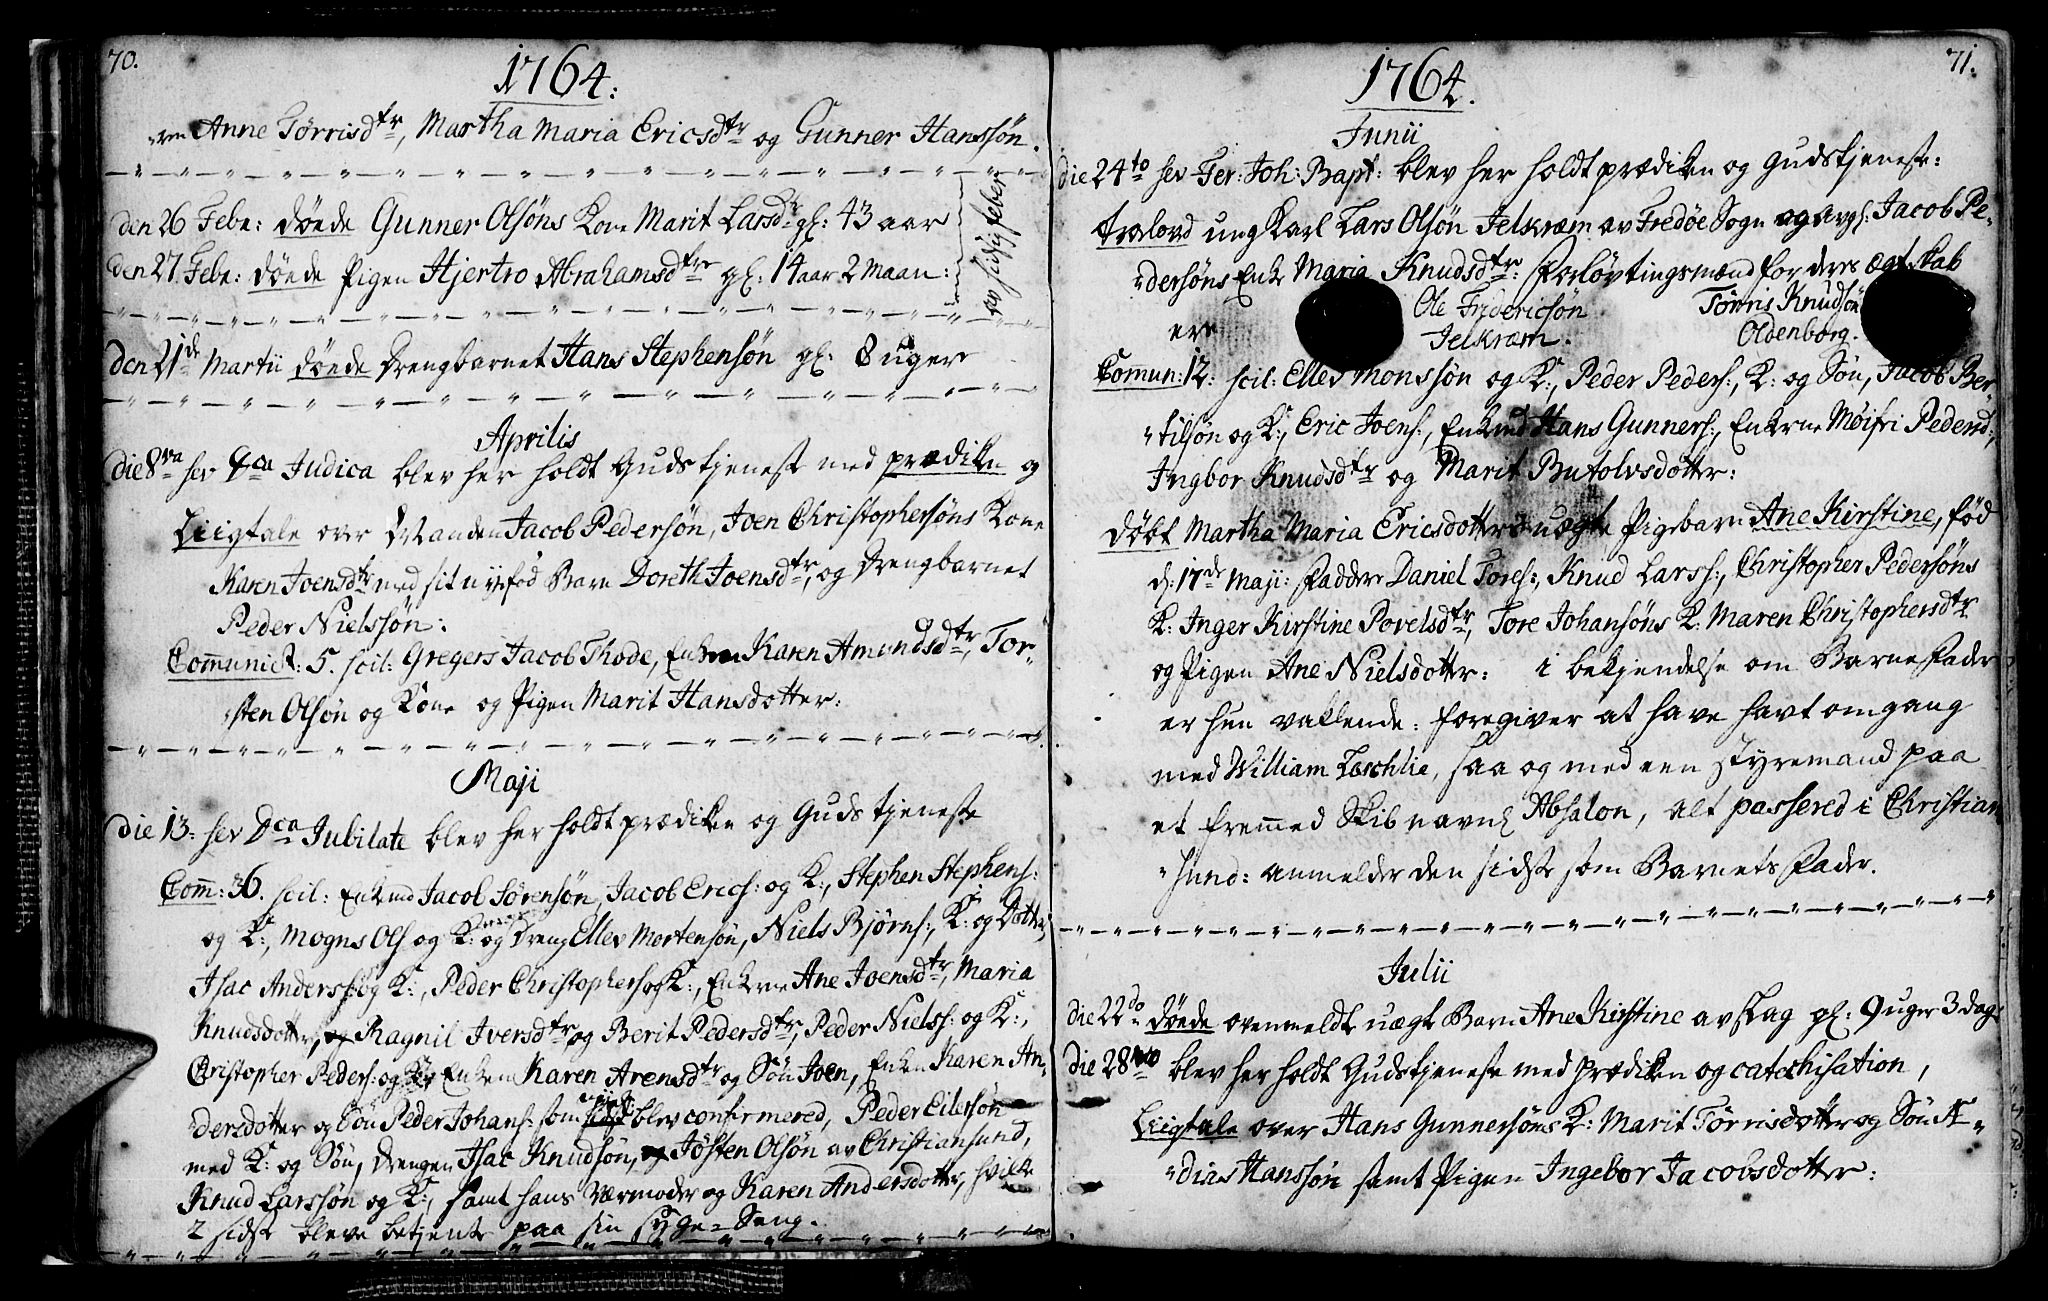 70.
1764:
"ren Anne Tørrisdtr, Martha Maria Ericsdtr og Gunner Hanssøn.
den 26 Febr: døede Gunner Olsøns Kone Marit Larsdr gl: 43 aar
den 27 Febr: døede Pigen Hjertro Abrahamsdtr gl: 14 aar 2 Maan:
av hidsig feber
den 21de Martii døede Drengbarnet Hans Stephensøn gl: 8 uger
Aprilis
die 8va sev Dca Judica blev her holdt Gudstjeneste med prædiken og
Liigtale over Manden Jacob Pedersøn, Joen Christophersøns Kone
Karen Joensdtr med sit nyefød Barn Doreth Joensdtr, og Drengbarnet
Peder Nielssøn:
Communict: 5. scil: Gregers Jacob Thode, Enken Karen Amundsdtr, Tor-
"sten Olsøn og Kone og Pigen Marit Hansdotter:
Maji
die 13: sev Dca Jubilate blev her holdt prædiken og Guds tjeneste
Comm: 36. scil: Enkmd Jacob Sørensøn, Jacob Erics: og K:, Stephen Stephens:
og K:, Mogns Ols og K: og Dreng Ellev Mortensøn, Niels Bjørns:, K: og Dotter,
Isac Anderss: og K:, Peder Christophers: og K:, Enkerne Ane Joensdtr, Maria
Knudsdotter, og Ragnil Iversdtr, og Berit Pedersdtr, Peder Nielss: og K:,
Christopher Peders: og K: Enken Karen Arensdtr og Søn Joen, Enken Karen An-
"dersdotter og Søn Peder Johans: som sidst blev confirmered, Peder Eilersøn
med K: og Søn, Drengen Isac Knudsøn, og Jøsten Olsøn av Christiansund,
Knud Larssøn og K:, samt hans Værmoder og Karen Andersdotter, hvilke
2 sidste bleve betjente paa sin syge-Seng.
71.
1764.
Junii
die 24to sev Fer: Joh: Bapt: blev her holdt prædiken og Gudstjeneste:
trolovd ung Karl Lars Olsøn Jelkræm av Fredøe Sogn og avg: Jacob Pe-
"dersøns Enke Maria Knudsdtr: Forløvtingsmænd for deres Ægteskab
ere Ole Fridericsøn Tørris Knudsøn
Jelkræm. Oldenborg.
Commun: 12: scil: Ellev Monssøn og K:, Peder Peders:, K: og Søn, Jacob Ber-
"tilsøn og K:, Eric Joens:, Enkmd Hans Gunners:, Enkerne Møifri Pedersd:,
Ingbor Knudsdtr og Marit Butolvsdotter:
døbt Martha Maria Ericsdotters uægte Pigebarn Ane Kirstine, fød
d: 17de Maji: Faddere Daniel Tores:, Knud Larss:, Christopher Pedersøns
K: Inger Kirstine Povelsdtr, Tore Johansøns K: Maren Christophersdtr
og Pigen Ane Nielsdotter: i bekjendelse om Barnefader
er hun vaklende: foregiver at have havt omgang
med William Leschlie, saa og med een styremand paa
et fremmed Skib navnl Absalon, alt passered i Christian
"sund: anmelder den sidste som Barnets Fader.
Julii
die 22do døede ovenmeldte uægte Barn Ane Kirstine av slag gl: 9 uger 3 dage
die 28vo blev her holdt Gudstjeneste med prædiken og catechisation,
Liigtale over Hans Gunnersøns K: Marit Tørrisdotter og Søn N-
"dias Hanssøn samt Pigen Ingebor Jacobsdotter: